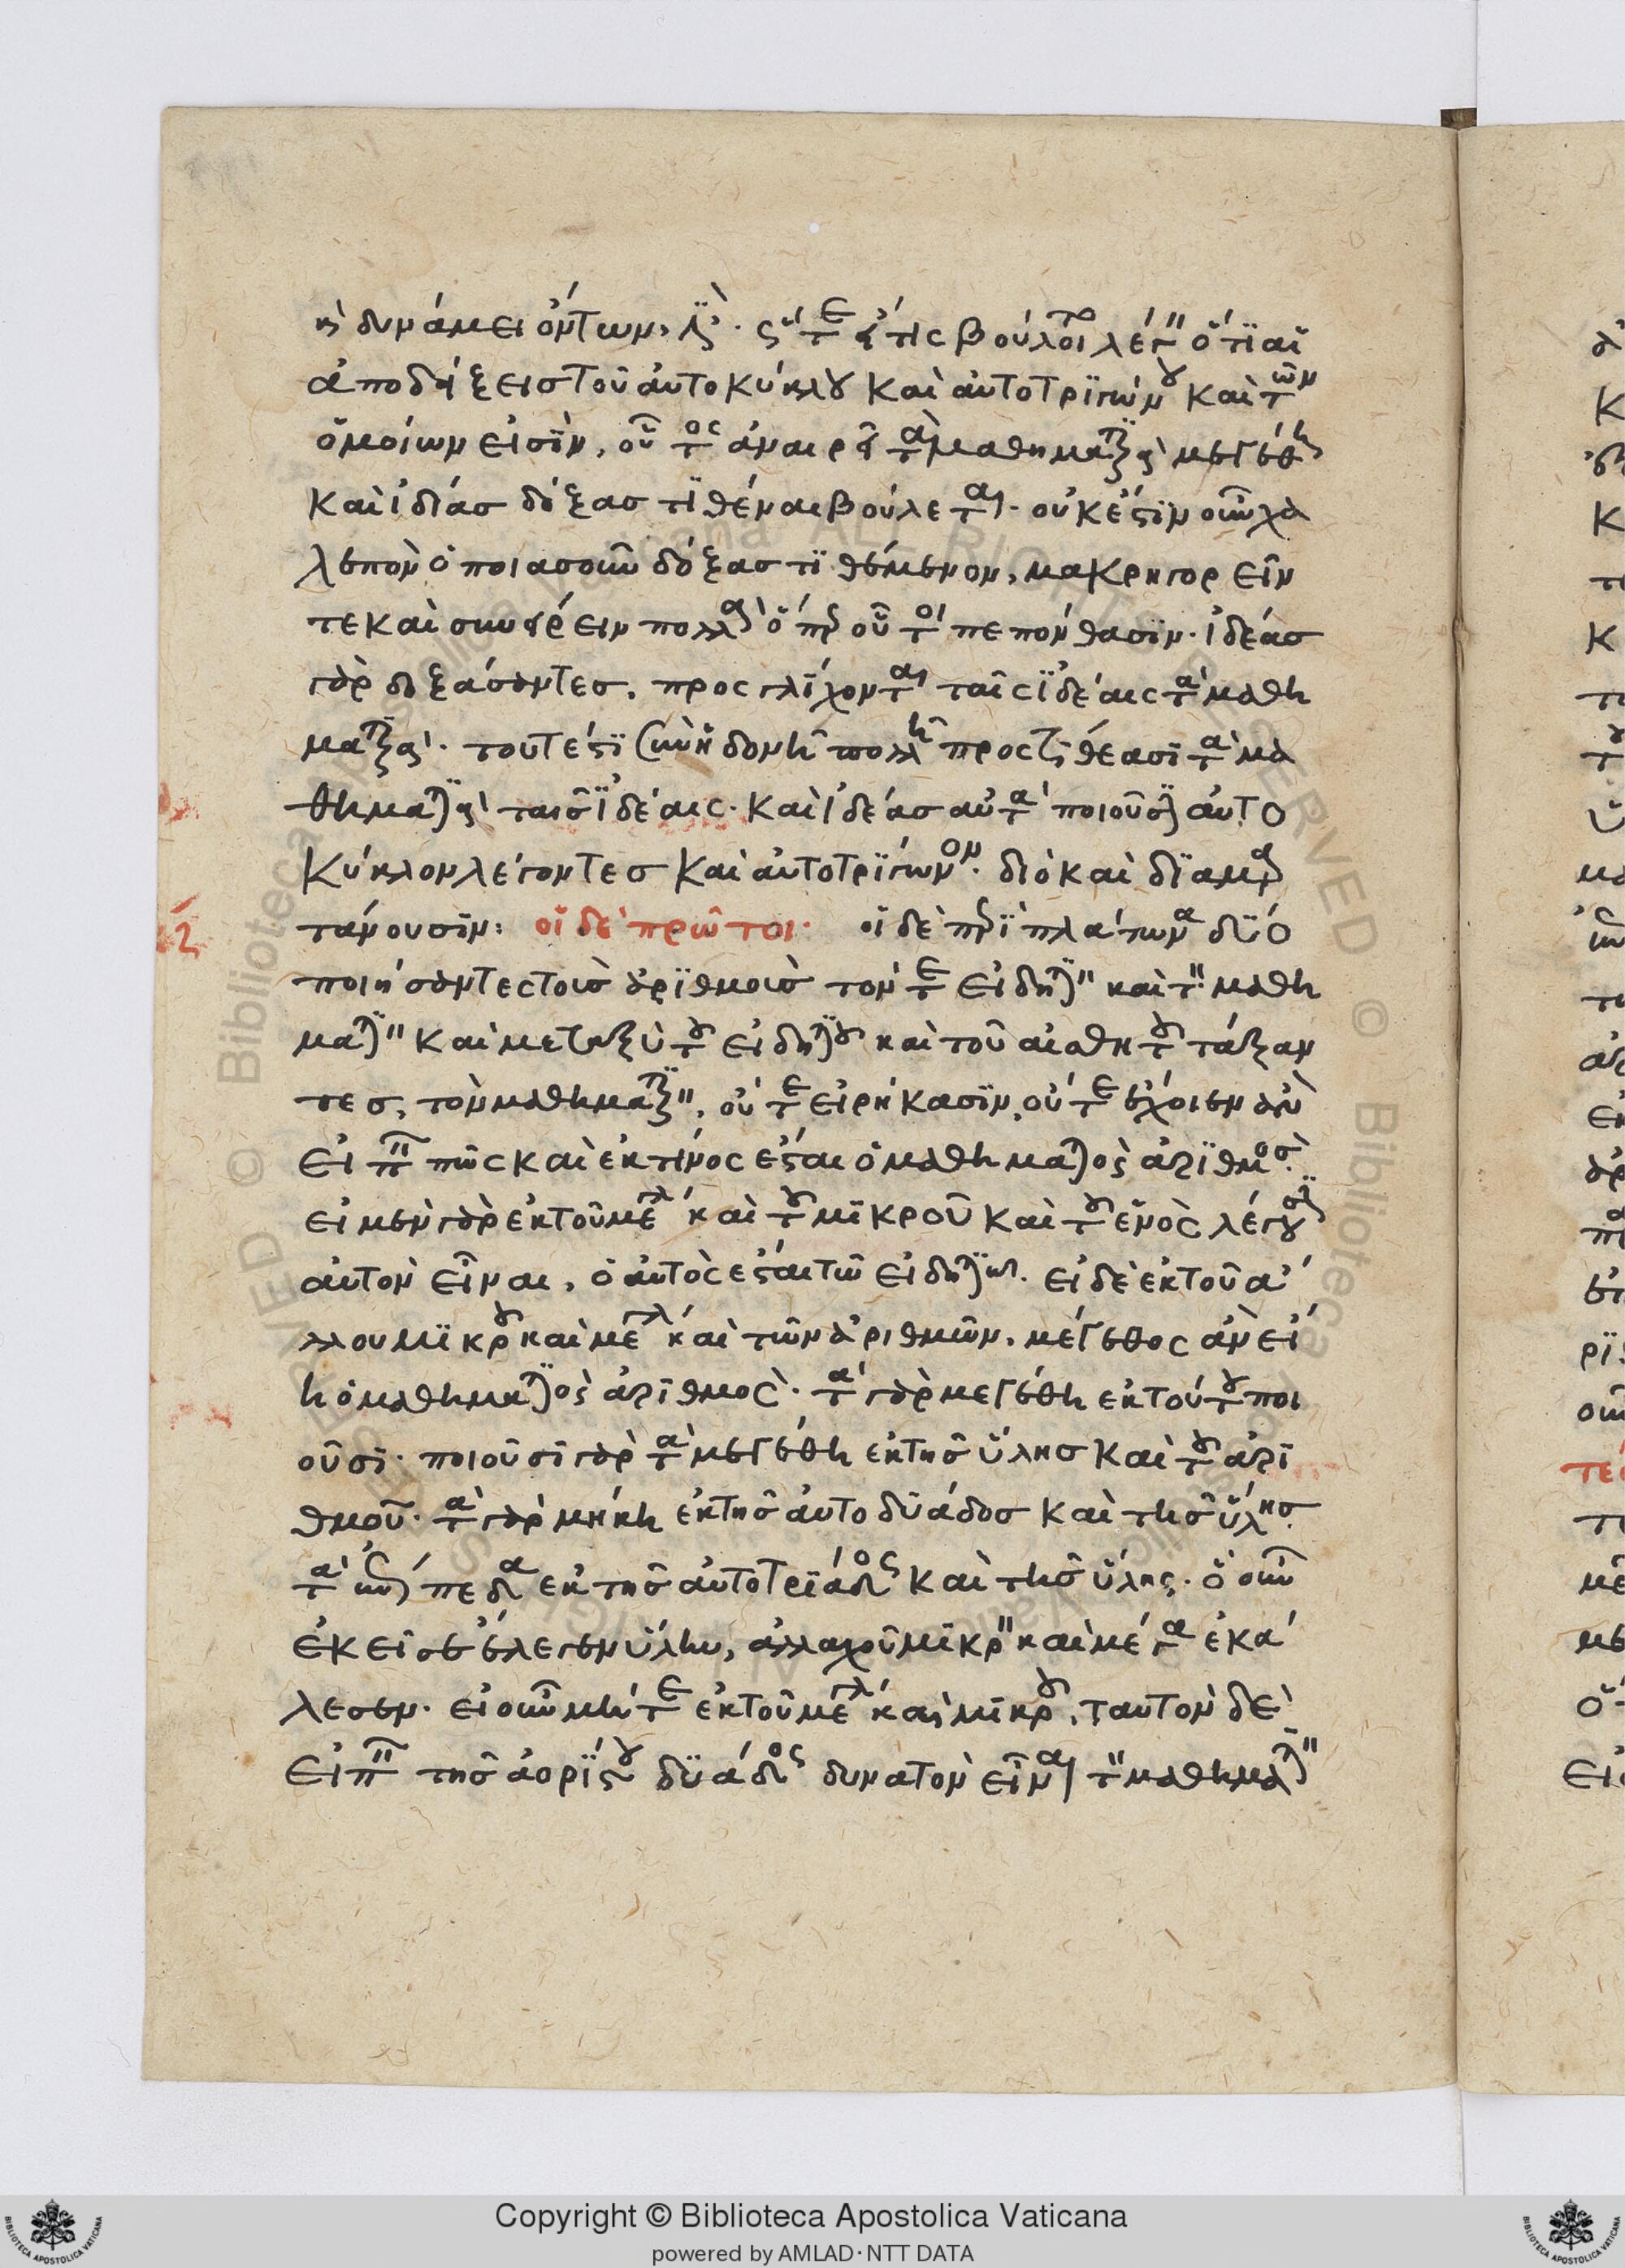 κ̀ δυνάμει ὄντων, λξ̀. ὥστε εἴ τις βούλοιτο λέγειν ὅτι αἱ
ἀποδείξεις τοῦ αὐτοκύκλου καὶ αὐτοτριγώνου καὶ τῶν
ὁμοίων εἰσὶν, οὗτος ἀναιρεῖ τὰ μαθηματικὰ μεγέθη
καὶ ἰδίας δόξας τιθέναι βούλεται. οὐκέστιν οὖν χα
λεπὸν ὁποιασοῦν δόξας τιθέμενον, μακρηγορεῖν
τε καὶ συνείρειν πολλὰ ὅπερ οὗτοι πεπόνθασιν. ἰδέας
γὰρ δοξάσαντες, προσγλίχονται ταῖς ἰδέαις τὰ μαθη
ματικά. τουτέστι σὺν ἡδονῇ πολλῇ προστιθέασι τὰ μα
θηματικὰ ταῖς ἰδέαις. καὶ ἰδέας αὐτὰ ποιοῦσιν αὐτο
κύκλον λέγοντες καὶ αὐτοτρίγωνον. διὸ καὶ διαμαρ
τάνουσιν: οἱ δὲ πρῶτοι. οἱ δὲ περὶ πλάτωνα δύο
ποιήσαντες τοὺς ἀριθμοὺς τόν τε εἰδητικὸν καὶ τὸν μαθη
ματικὸν καὶ μεταξὺ τοῦ εἰδητικοῦ καὶ τοῦ αἰσθητοῦ τάξαν
τες, τὸν μαθηματικὸν, οὔτε εἰρήκασιν, οὔτε ἔχοιεν ἂν
εἰπεῖν πῶς καὶ ἐκ τίνος ἔσται ὁ μαθηματικὸς ἀριθμός.
εἰ μὲν γὰρ ἐκ τοῦ μεγάλου καὶ τοῦ μικροῦ καὶ τοῦ ἑνὸς λέγουσιν
αὐτὸν εἶναι, ὁ αὐτὸς ἔσται τῷ εἰδητικῷ. εἰ δὲ ἐκ τοῦ ἄ
λλου μικροῦ καὶ μεγάλου καὶ τῶν ἀριθμῶν, μέγεθος ἂν εἴ
η ὁ μαθηματικὸς ἀριθμὸς. τὰ γὰρ μεγέθη ἐκ τούτου ποι
οῦσι. ποιοῦσι γὰρ τὰ μεγέθη ἐκ τῆς ὕλης καὶ τοῦ ἀρι
θμοῦ. τὰ γὰρ μήκη ἐκ τῆς αὐτοδυάδος καὶ τῆς ὕλης.
τὰ ἐπίπεδα ἐκ τῆς αὐτοτριάδος καὶ τῆς ὕλης. ὃ οὖν
ἐκεῖσε ἔλεγεν ὕλην, ἀλλαχοῦ μικρὸν καὶ μέγα ἐκά
λεσεν. εἰ οὖν μήτε ἐκ τοῦ μεγάλου καὶ μικροῦ, ταυτὸν δὲ
εἰπεῖν τῆς ἀορίστου δυάδος δυνατὸν εἶναι τὸν μαθηματικὸν